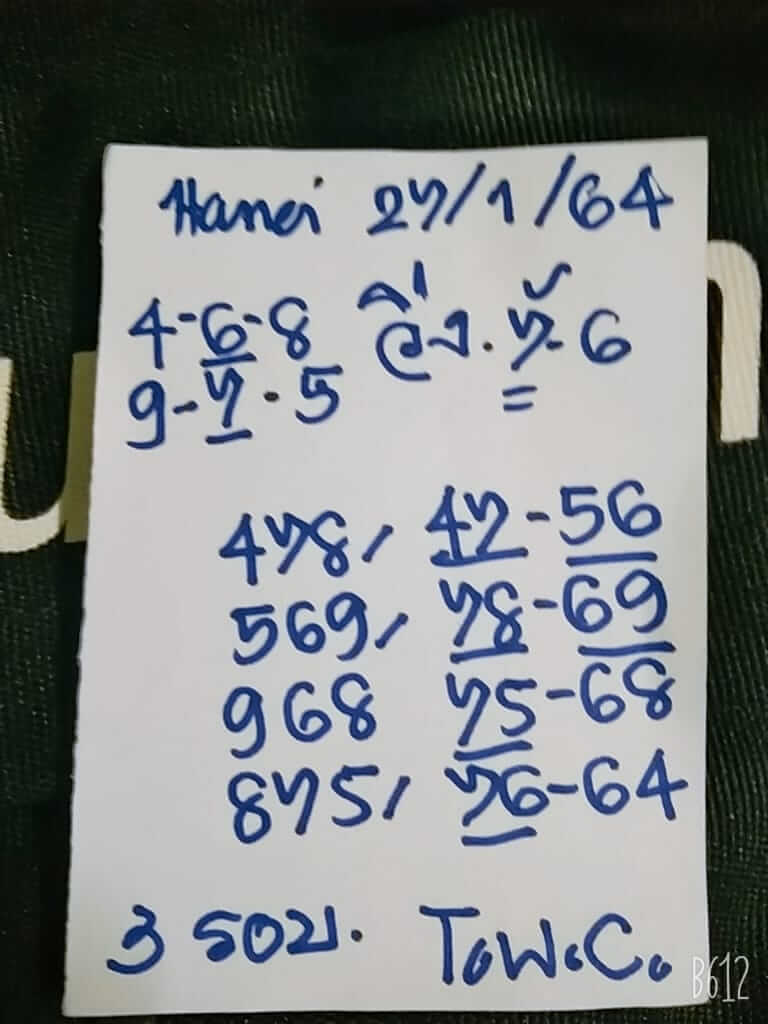 Hanoi 27/1/64
4-6-8 วิ่ง. 7-6
9-7-5
478/ 47-56
569/ 78-69
968 75-68
875/ 76-64
3 รอบ. T.W.C.
B612